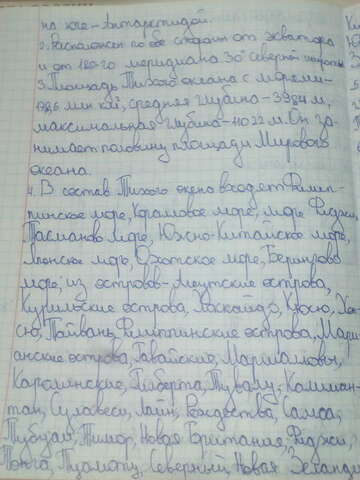 на юге - Антарктидой.
2. Расположен по обе стороны от экватора
и от 180-го меридиана 30° северной
3. Площадь Тихого океана с морями -
178,6 млн км², средняя глубина - 3984 м,
максимальная глубина - 11022 м. Он за-
нимает половину площади Мирового
океана.
4. В состав Тихого океана входят Филип-
пинское море, Коралловое море, море Фиджи,
Тасманово море, Южно-Китайское море,
Японское море, Охотское море, Берингово
море; из островов - Алеутские острова,
Курильские острова, Хоккайдо, Кюсю, Хон-
сю, Тайвань, Филиппинские острова, Мари-
анские острова, Гавайские, Маршалловы,
Каролинские, Гилберта, Тувалу, Калиман-
тан, Сулавеси, Лайн, Рождества, Самоа,
Тубуаи, Тимор, Новая Британия, Фиджи,
Тонга, Туамоту, Северный, Новая Зеланди